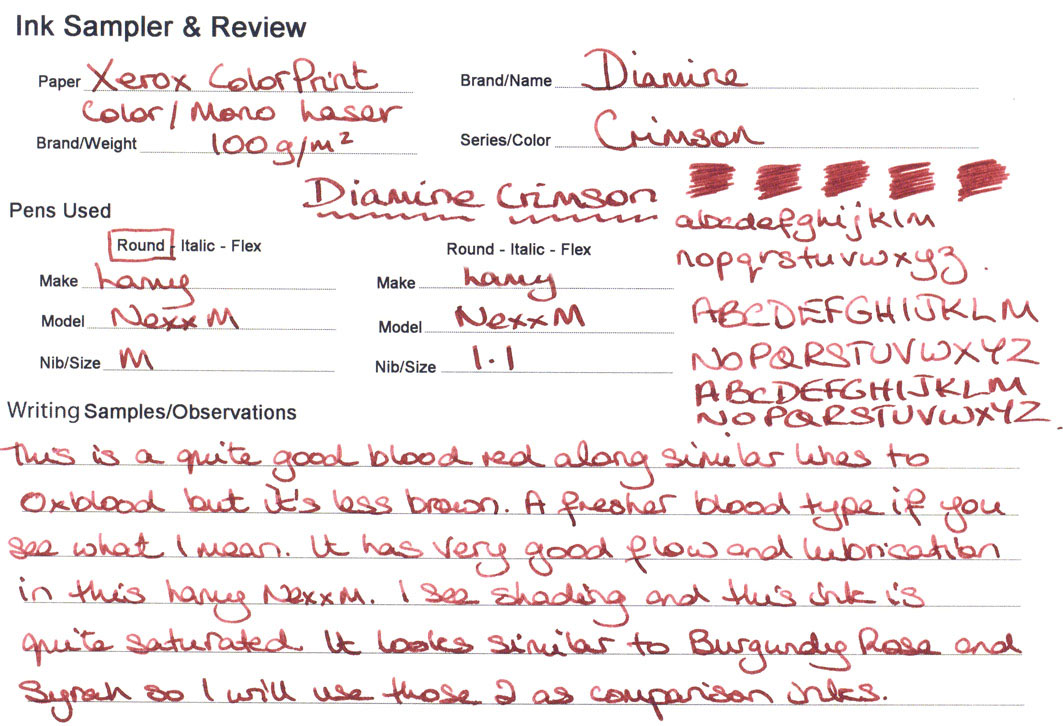 Ink Sampler & Review
Paper Xerox ColorPrint
Color/Mono Laser
Brand/Weight 100g/m²
Brand/Name Diamine
Series/Color Crimson
Diamine Crimson
Pens Used
Round - Italic - Flex
Make Lamy
Model Nexx M
Nib/Size M
Round - Italic - Flex
Make Lamy
Model Nexx M
Nib/Size 1.1
abcdefghijklm
nopqrstuvwxyz.
ABCDEFGHIJKLM
NOPQRSTUVWXYZ
ABCDEFGHIJKLM
NOPQRSTUVWXYZ.
Writing Samples/Observations
This is a quite good blood red along similar lines to
Oxblood but it's less brown. A fresher blood type if you
see what I mean. It has very good flow and lubrication
in this Lamy Nexx M. I see shading and this ink is
quite saturated. It looks similar to Burgundy Rose and
Syrah so I will use those 2 as comparison inks.